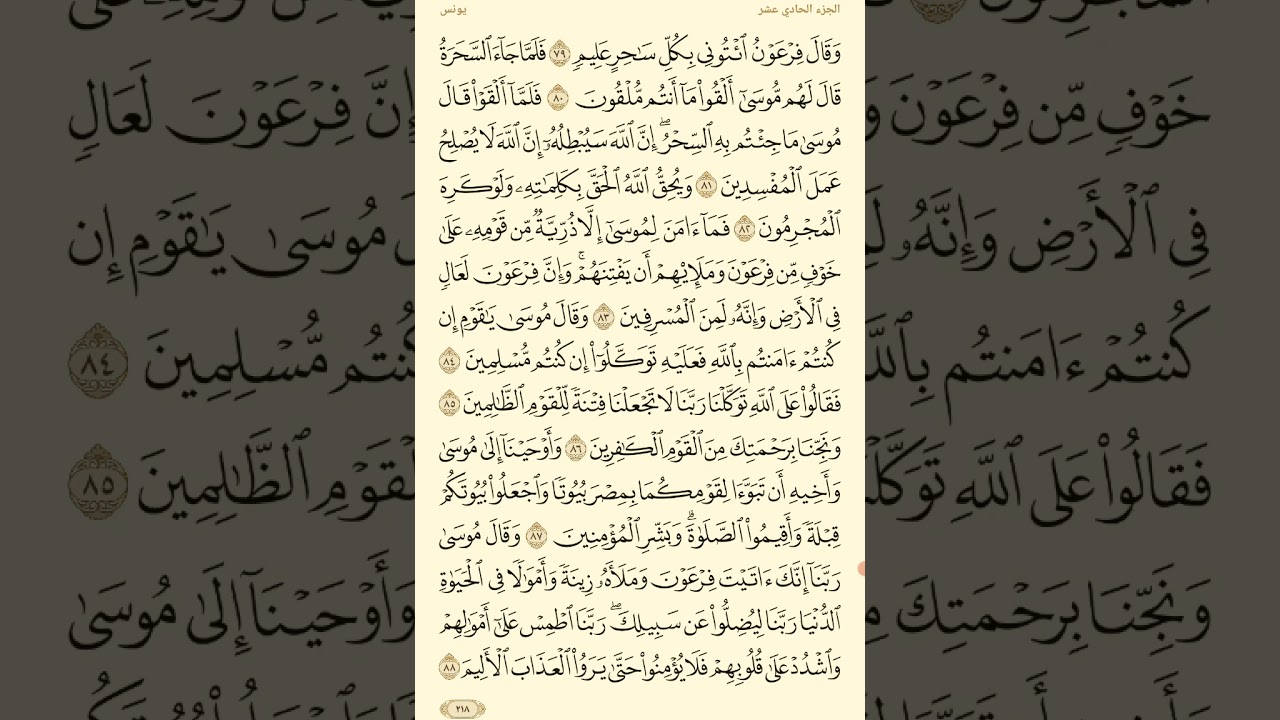 الجزء الحادي عشر
يونس
وَقَالَ فِرْعَوْنُ ٱئْتُونِى بِكُلِّ سَـٰحِرٍ عَلِيمٍ ٧٩ فَلَمَّا جَآءَ ٱلسَّحَرَةُ
قَالَ لَهُم مُّوسَىٰٓ أَلْقُوا۟ مَآ أَنتُم مُّلْقُونَ ٨٠ فَلَمَّآ أَلْقَوْا۟ قَالَ
مُوسَىٰ مَا جِئْتُم بِهِ ٱلسِّحْرُ ۖ إِنَّ ٱللَّهَ سَيُبْطِلُهُۥٓ إِنَّ ٱللَّهَ لَا يُصْلِحُ
عَمَلَ ٱلْمُفْسِدِينَ ٨١ وَيُحِقُّ ٱللَّهُ ٱلْحَقَّ بِكَلِمَـٰتِهِۦ وَلَوْ كَرِهَ
ٱلْمُجْرِمُونَ ٨٢ فَمَآ ءَامَنَ لِمُوسَىٰٓ إِلَّا ذُرِّيَّةٌ مِّن قَوْمِهِۦ عَلَىٰ
خَوْفٍ مِّن فِرْعَوْنَ وَمَلَإِي۟هِمْ أَن يَفْتِنَهُمْ ۚ وَإِنَّ فِرْعَوْنَ لَعَالٍ
فِى ٱلْأَرْضِ وَإِنَّهُۥ لَمِنَ ٱلْمُسْرِفِينَ ٨٣ وَقَالَ مُوسَىٰ يَـٰقَوْمِ إِن
كُنتُمْ ءَامَنتُم بِٱللَّهِ فَعَلَيْهِ تَوَكَّلُوٓا۟ إِن كُنتُم مُّسْلِمِينَ ٨٤
فَقَالُوا۟ عَلَى ٱللَّهِ تَوَكَّلْنَا رَبَّنَا لَا تَجْعَلْنَا فِتْنَةً لِّلْقَوْمِ ٱلظَّـٰلِمِينَ ٨٥
وَنَجِّنَا بِرَحْمَتِكَ مِنَ ٱلْقَوْمِ ٱلْكَـٰفِرِينَ ٨٦ وَأَوْحَيْنَآ إِلَىٰ مُوسَىٰ
وَأَخِيهِ أَن تَبَوَّءَا لِقَوْمِكُمَا بِمِصْرَ بُيُوتًا وَٱجْعَلُوا۟ بُيُوتَكُمْ
قِبْلَةً وَأَقِيمُوا۟ ٱلصَّلَوٰةَ ۗ وَبَشِّرِ ٱلْمُؤْمِنِينَ ٨٧ وَقَالَ مُوسَىٰ
رَبَّنَآ إِنَّكَ ءَاتَيْتَ فِرْعَوْنَ وَمَلَأَهُۥ زِينَةً وَأَمْوَٰلًا فِى ٱلْحَيَوٰةِ
ٱلدُّنْيَا رَبَّنَا لِيُضِلُّوا۟ عَن سَبِيلِكَ ۖ رَبَّنَا ٱطْمِسْ عَلَىٰٓ أَمْوَٰلِهِمْ
وَٱشْدُدْ عَلَىٰ قُلُوبِهِمْ فَلَا يُؤْمِنُوا۟ حَتَّىٰ يَرَوُا۟ ٱلْعَذَابَ ٱلْأَلِيمَ ٨٨
٢١٨